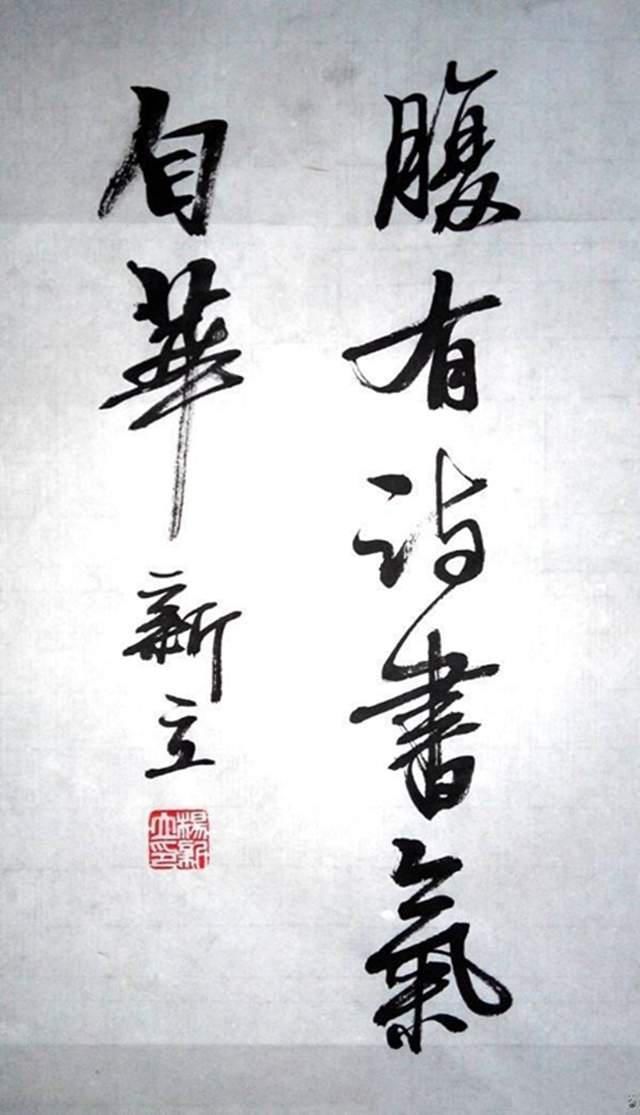 腹有詩書氣
自華
新立
楊新立印